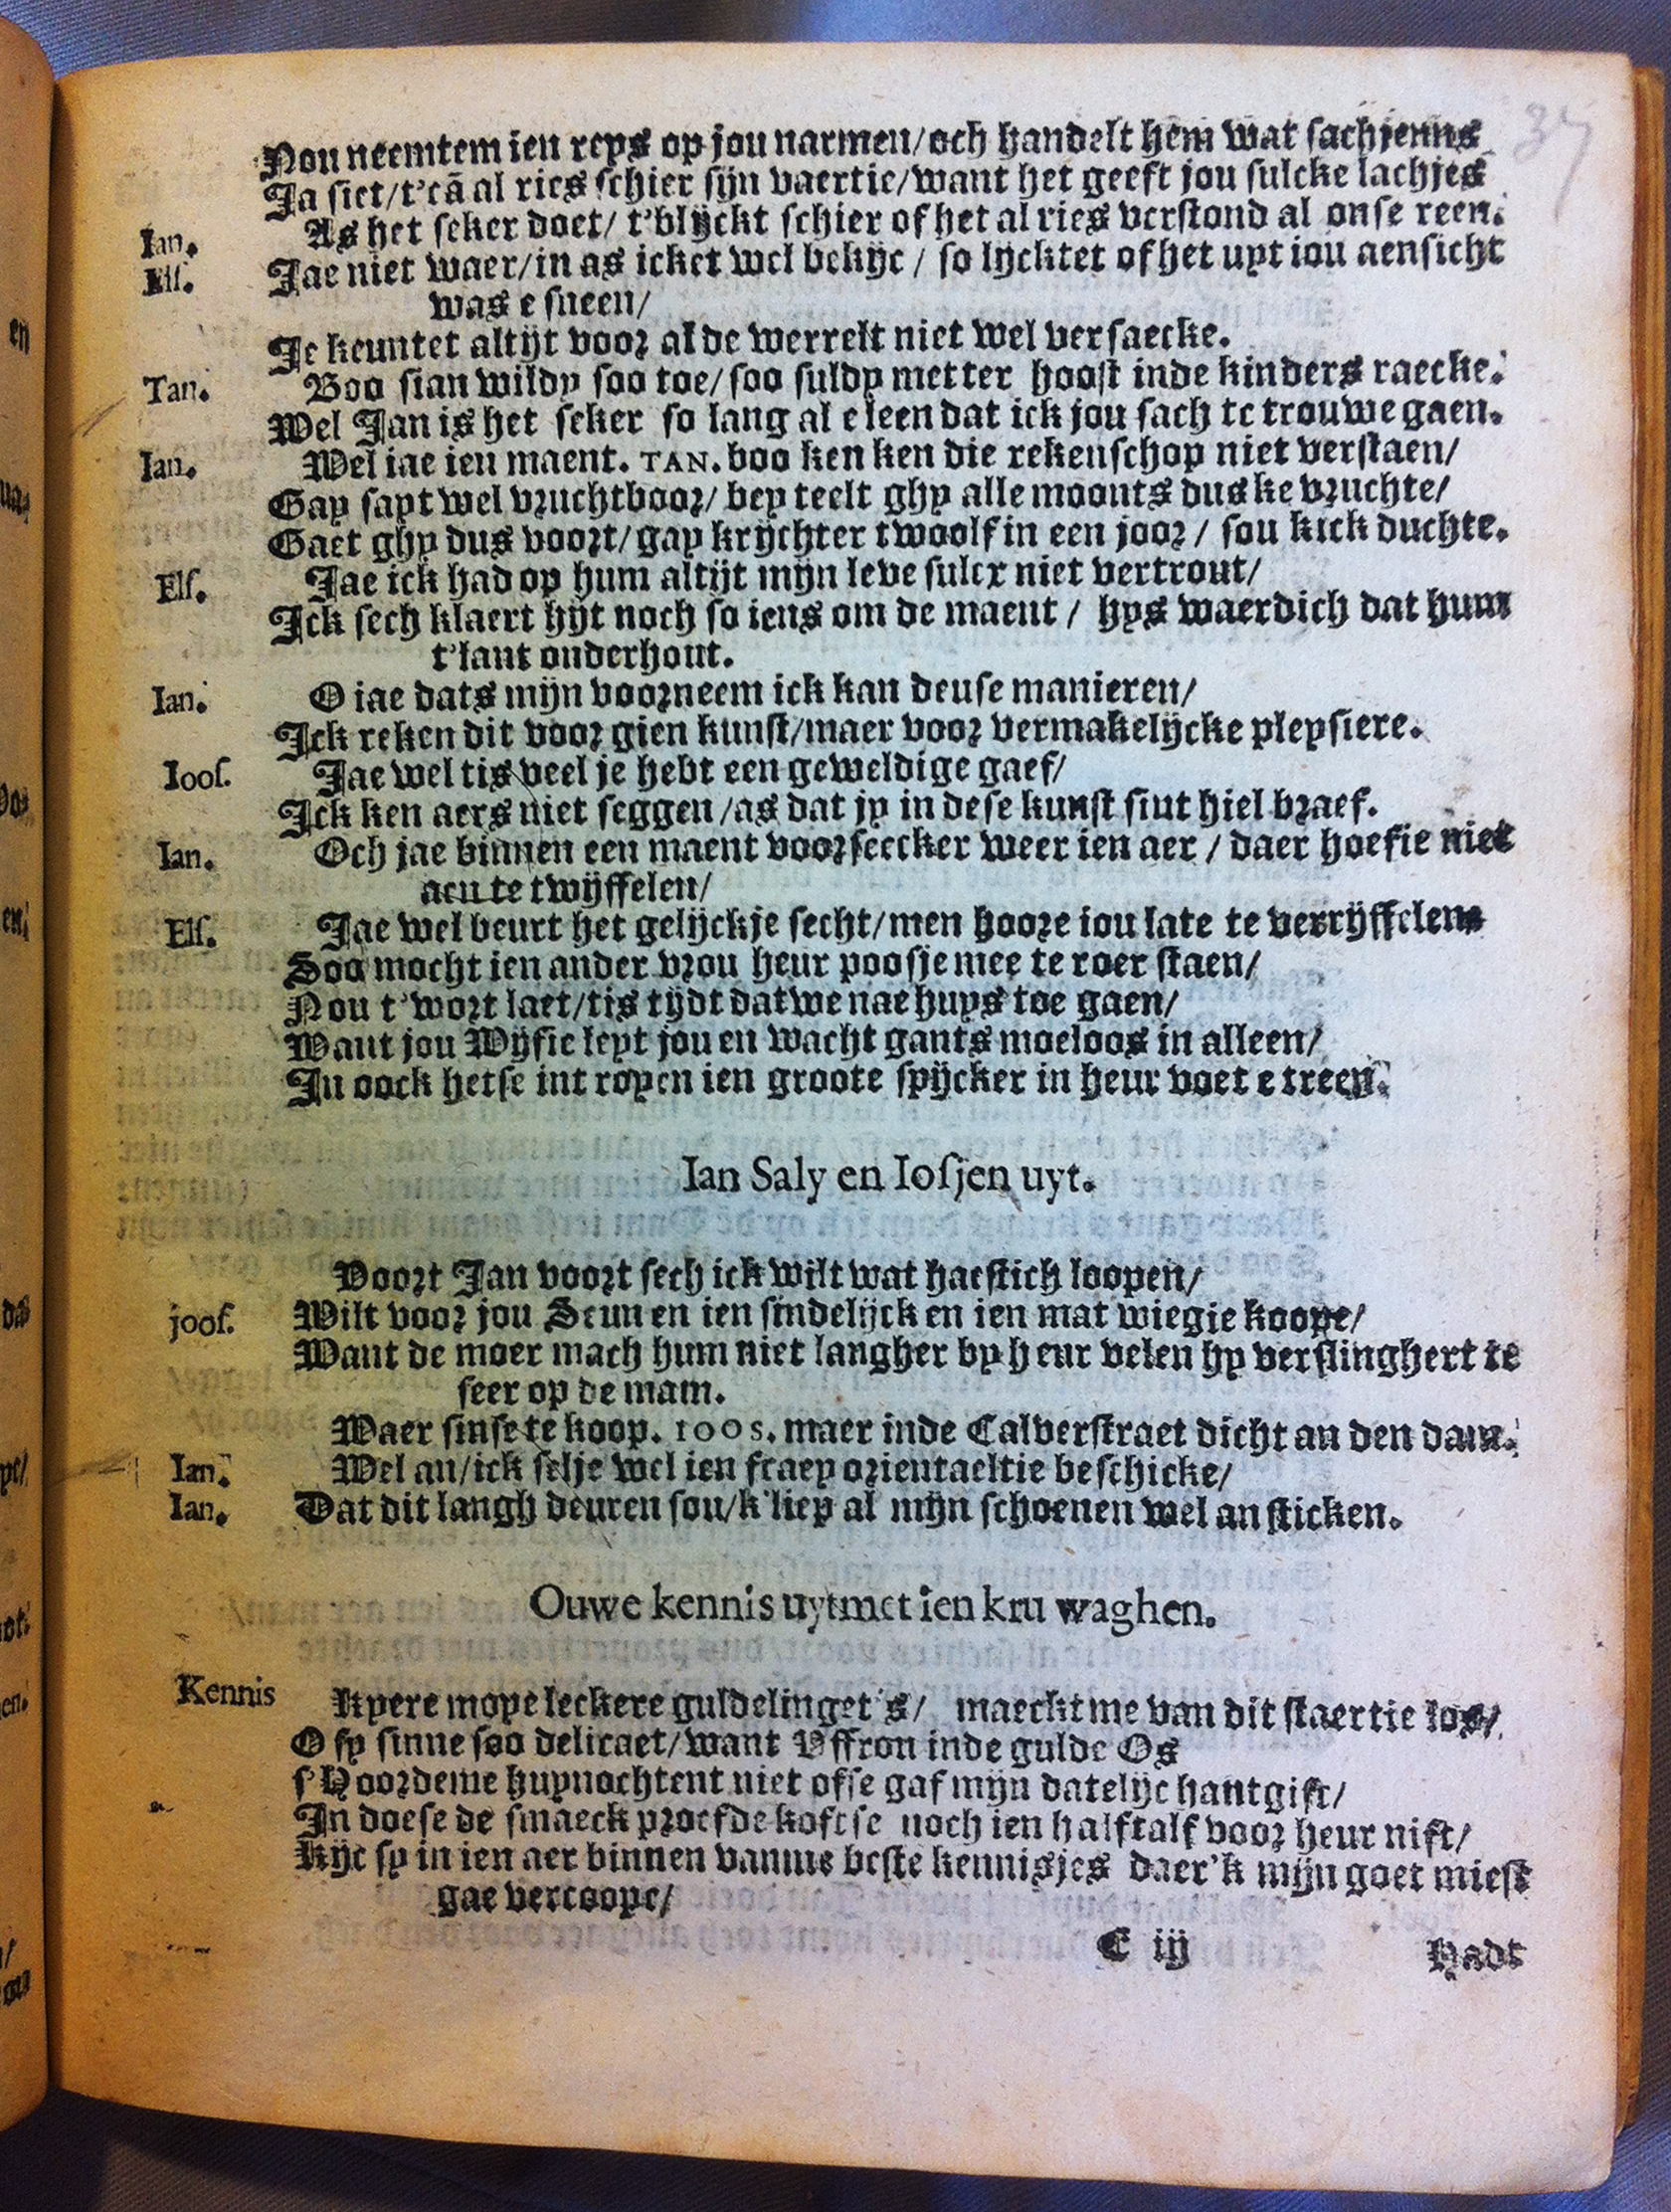 37
Nou neemtem ien reys op jou narmen/och handelt hem wat sachjenns
Ja siet/t'cā al ries schier sijn vaertie/want het geeft jou sulcke lachjes
Ian. As het seker doet/ t'blijckt schier of het al ries verstond al onse reen.
Els. Jae niet waer/in as icket wel bekijc / so lijcktet of het uyt iou aensicht
was e sneen/
Je keuntet altijt voor al de werrelt niet wel versaecke.
Tan. Boo sian wildy soo toe/soo suldy metter hoost inde kinders raecke.
Wel Jan is het seker so lang al e leen dat ick jou sach te trouwe gaen.
Ian. Wel iae ien maent. TAN. boo ken ken die rekenschop niet verstaen/
Gay sayt wel vruchtboor/ bey teelt ghy alle moonts dus ke vruchte/
Gaet ghy dus voort/gay krijchter twoolf in een joor / sou kick duchte.
Els. Jae ick had op hum altijt mijn leve sulcx niet vertrout/
Ick sech klaert hijt noch so iens om de maent / hys waerdich dat hum
t'lant onderhout.
Ian. O iae dats mijn voorneem ick kan deuse manieren/
Ick reken dit voor gien kunst/maer voor vermakelijcke pleysiere.
Ioos. Jae wel tis veel je hebt een geweldige gaef/
Ick ken aers niet seggen/as dat jy in dese kunst sint hiel braef.
Ian. Och jae binnen een maent voorseecker weer ien aer / daer hoefie niet
aen te twijffelen/
Els. Jae wel beurt het gelijck je secht/men hoore iou late te verrijffelen
Soo mocht ien ander vrou heur poosje mee te roer staen/
Nou t'wort laet/tis tijdt dat we nae huys toe gaen/
Want jou Wijfie leyt jou en wacht gants moeloos in alleen/
In oock hetse int ropen ien groote spijcker in heur voet e treen.
Ian Saly en Iosjen uyt.
Voort Jan voort sech ick wilt wat haestich loopen/
joos. Wilt voor jou Seun en ien sindelijck en ien mat wiegie koope/
Want de moer mach hum niet langher by heur velen hy verslinghert te
seer op de mam.
Waer sinse te koop. IOOS. maer inde Calverstraet dicht an den dam.
Ian. Wel an/ick selje wel ien fraey orientaeltie beschicke/
Ian. Dat dit langh deuren sou/k'liep al mijn schoenen wel an sticken.
Ouwe kennis uyt met ien kru waghen.
Kennis Kyere moye leckere guldelinget's/ maeckt me van dit staertie los/
O sy sinne soo delicaet/want Yffron inde gulde Os
s'Hoordeme huynochtent niet ofse gaf mijn datelijc hantgift/
In doese de smaeck proefde koftse noch ien halftalf voor heur nift/
Kijc sy in ien aer binnen vanme beste kennisjes daer'k mijn goet miest
gae vercoope/
C iij
Hadt